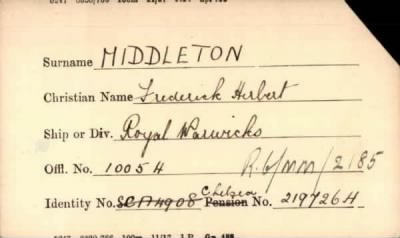 Surname MIDDLETON
Christian Name Frederick Herbert
Ship or Div. Royal Warwicks
Offl. No. 10054 R.6/MM/2185
Identity No. SC174908 Chelsea Pension No. 219726H